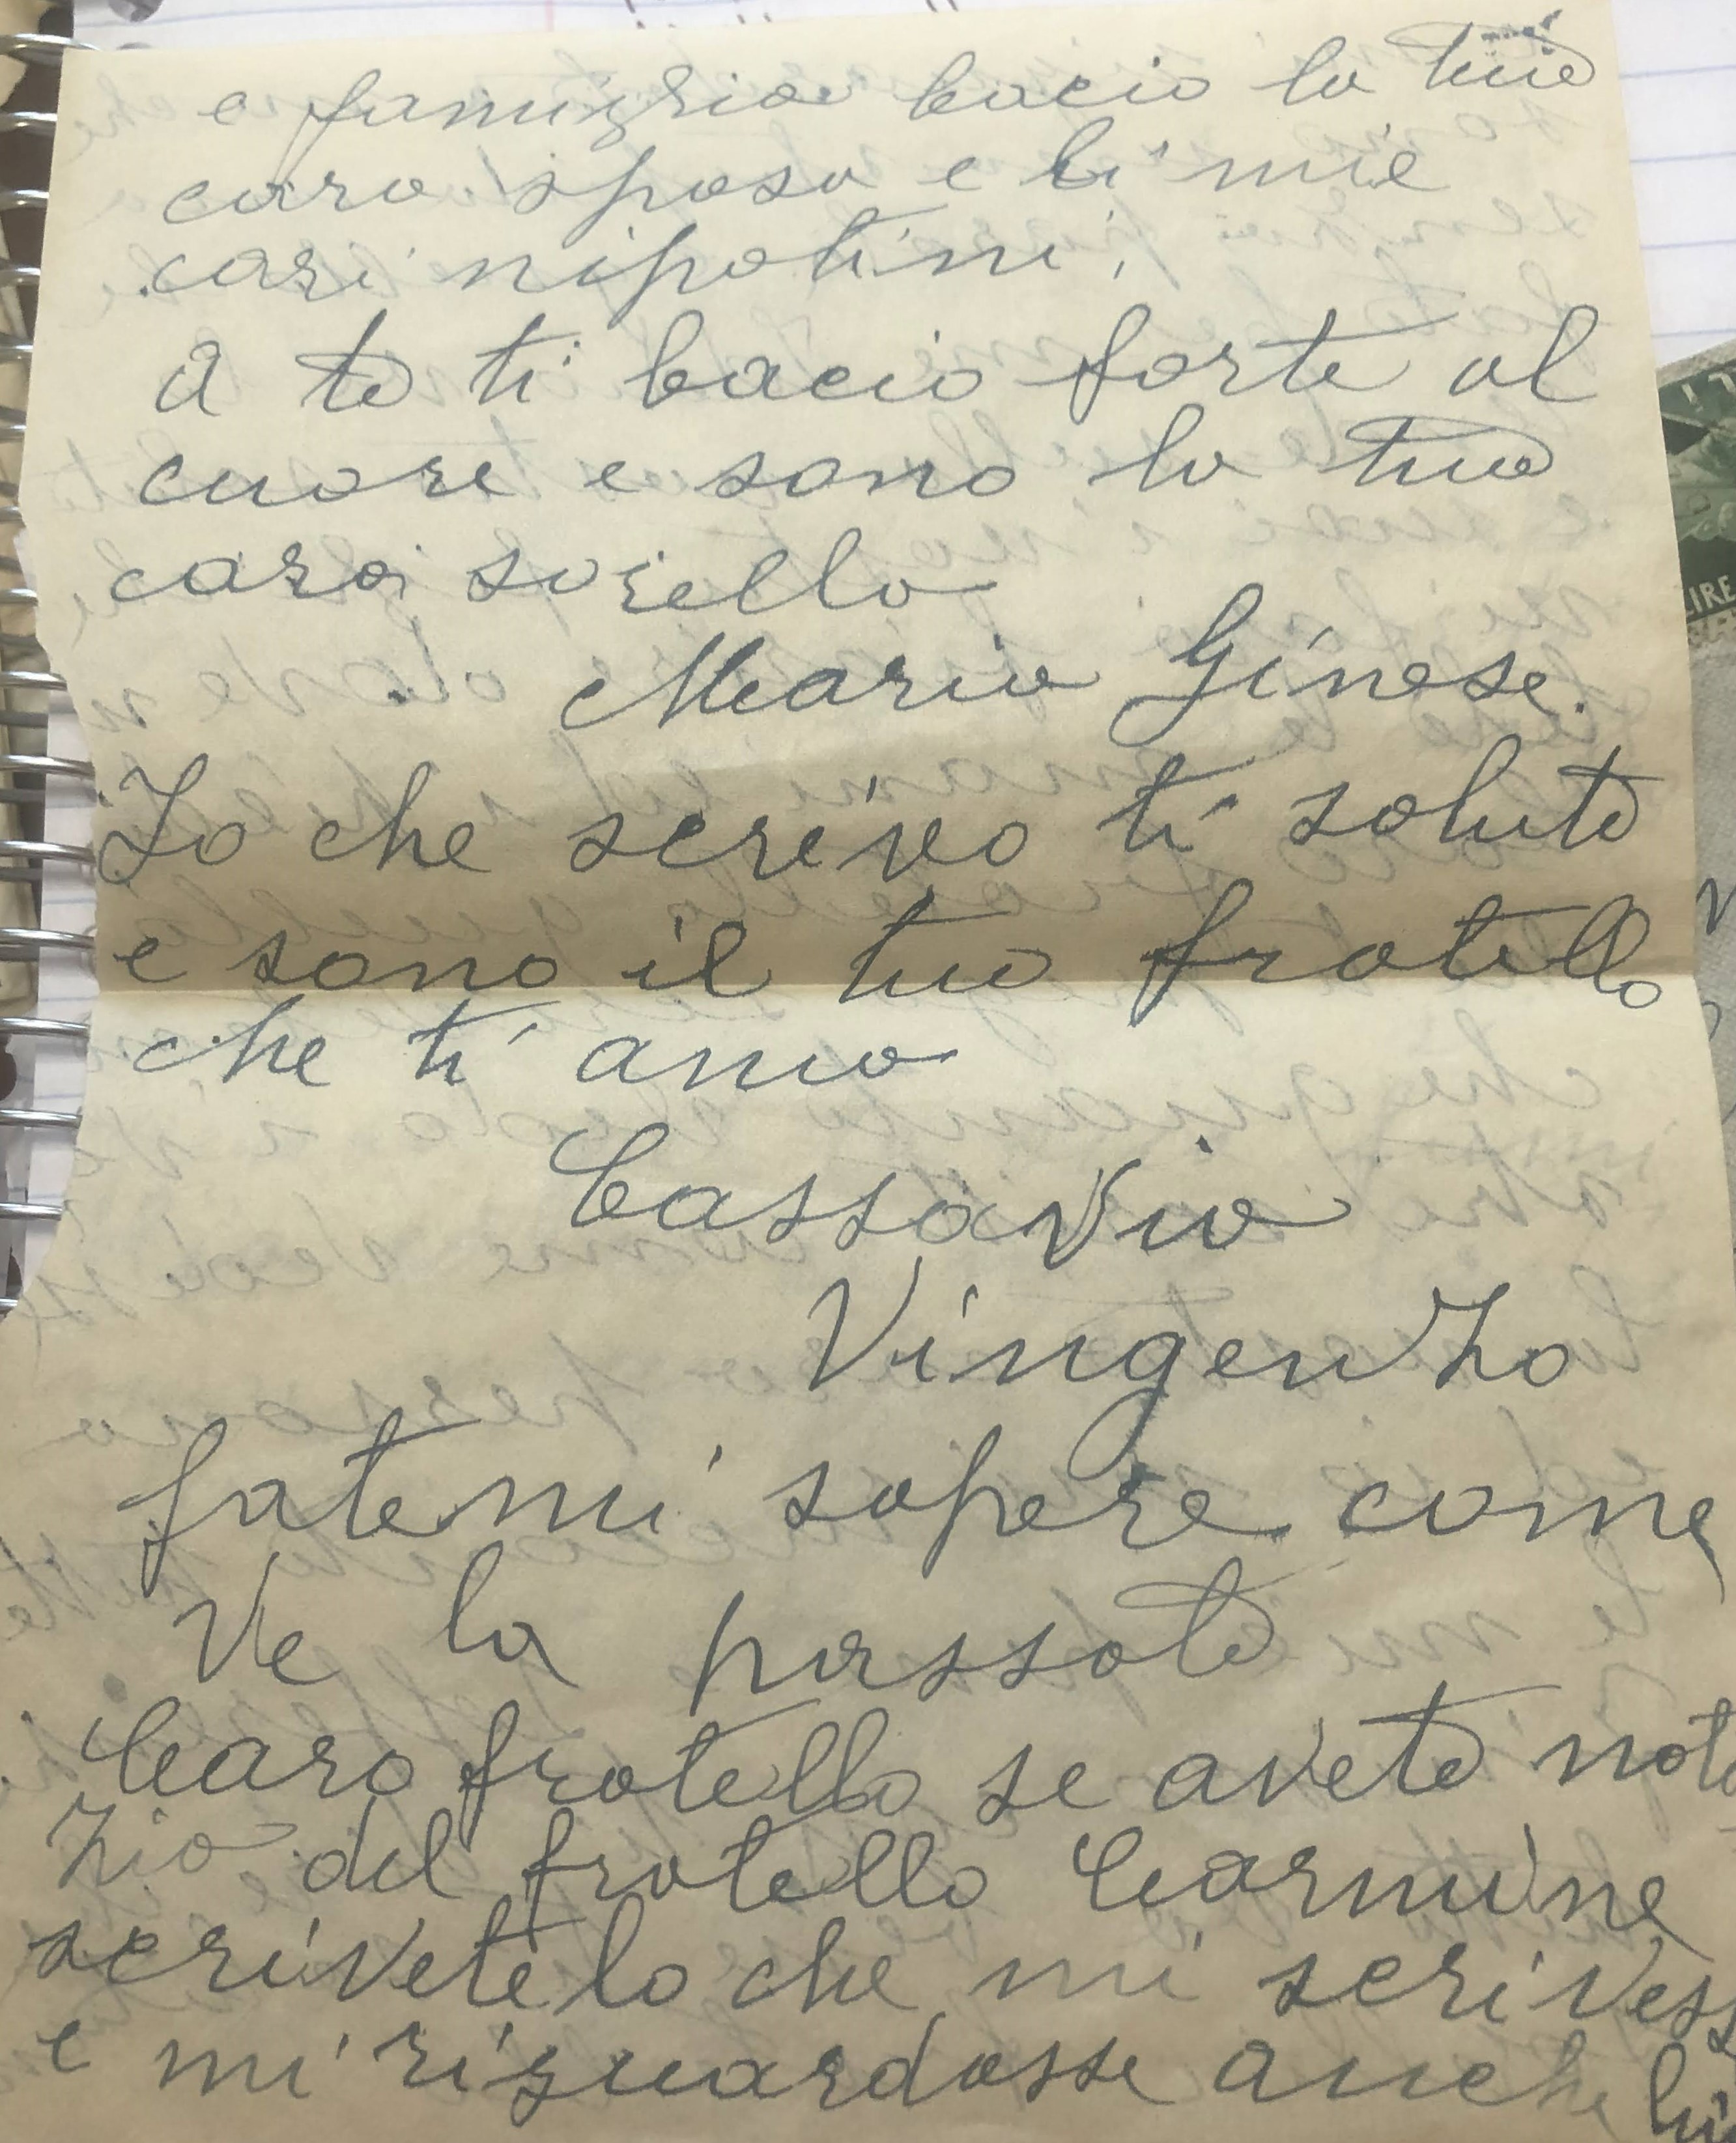 e famigria bacio la tua
cara sposa e li mie
cari nipotini,
A te ti bacio forte al
cuore e sono la tua
cara sorella
Maria Ginese.
Io che scrivo ti saluto
e sono il tuo fratello
che ti ama
Cassavia
Vingenzo
fatemi sapere come
ve la passate
Caro fratello se avete noti
zia del fratello Carmine
scrivetelo che mi scrivess
e mi risguardasse anche lui
LIRE